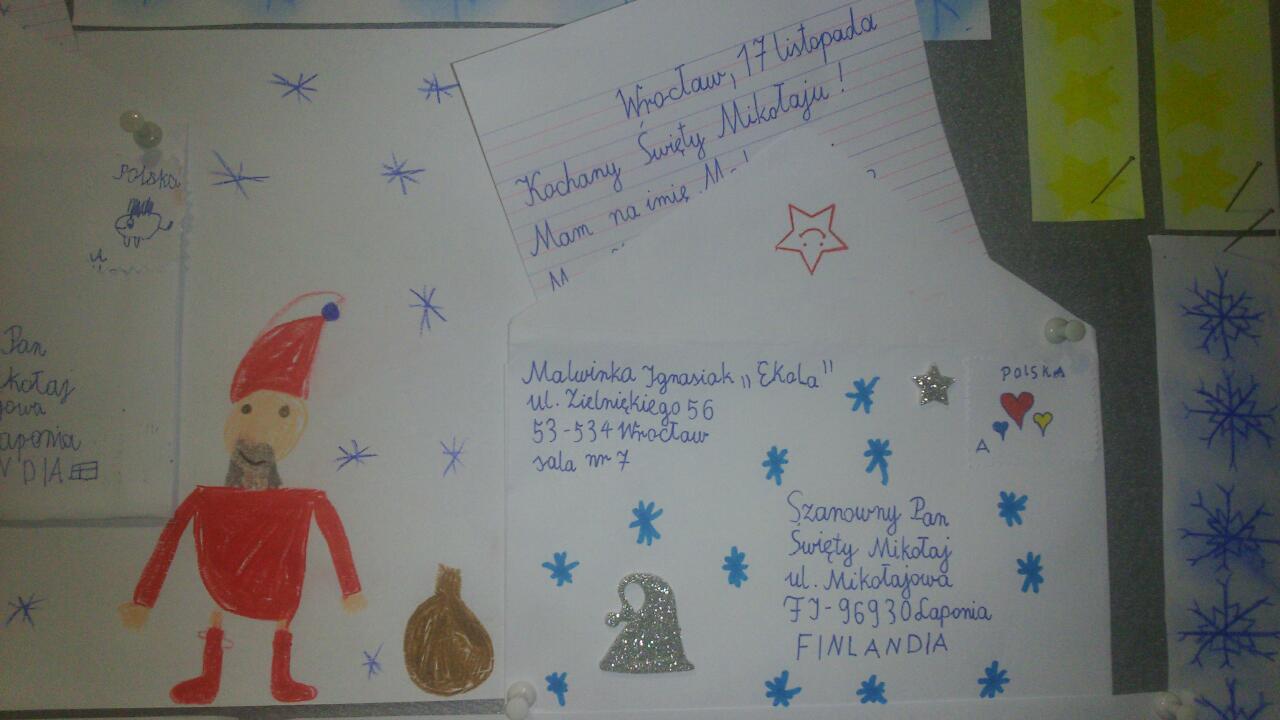 Wrocław, 17 listopada
Kochany Święty Mikołaju!
Mam na imię
Polska
Pan
kołaj
jowa
aponia
DIA
Malwinka Ignasiak „Ekola"
ul. Zielnickiego 56
53-534 Wrocław
sala nr 7
POLSKA
A
Szanowny Pan
Święty Mikołaj
ul. Mikołajowa
FI-96930 Laponia
FINLANDIA